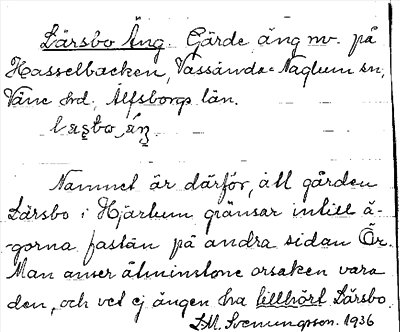 Lärsbo Äng. Gärde äng nv. på
Hasselbacken, Vassända-Naglum sn,
Väne hd, Älfsborgs län.
Namnet är därför, att gården
Lärsbo i Hjärtum gränsar intill ä-
gorna fastän på andra sidan Ör.
Man anser åtminstone orsaken vara
den, och vet ej ängen ha tillhört Lärsbo.
L.M. Svenungsson. 1936